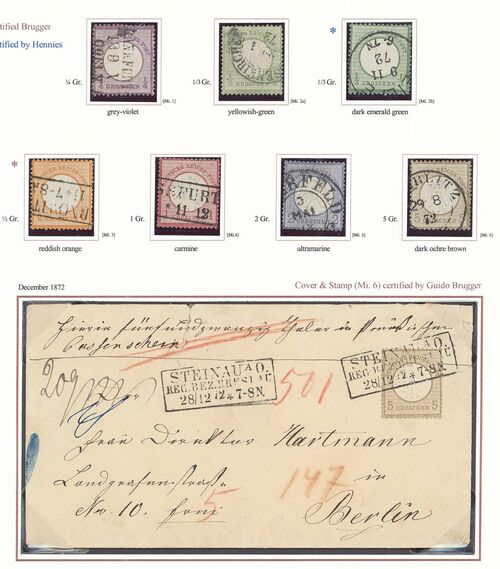 rtified Brugger
rtified by Hennies
*
¼ Gr.
1/3 Gr.
1/3 Gr.
grey-violet
[Mi. 1]
yellowish-green
[Mi. 2a]
dark emerald green
[Mi. 2b]
*
½ Gr.
1 Gr.
2 Gr.
5 Gr.
RFURT
11 12
reddish orange
[Mi. 3]
carmine
[Mi.4]
ultramarine
[Mi. 5]
dark ochre brown
[Mi. 6]
December 1872
Cover & Stamp (Mi. 6) certified by Guido Brugger
Hierin fünfundzwanzig Thaler in Preussischen
Cassenschein
209
STEINAU A O.
REG. BEZ. BRESLAU
28 12 72 7-8N.
501
STEINAU A O.
REG. BEZ. BRESLAU
28 12 72 7-8N.
5 GROSCHEN 5
Frau Direktor Hartmann
Landgrafenstraße
in
147
No. 10. 5
Berlin